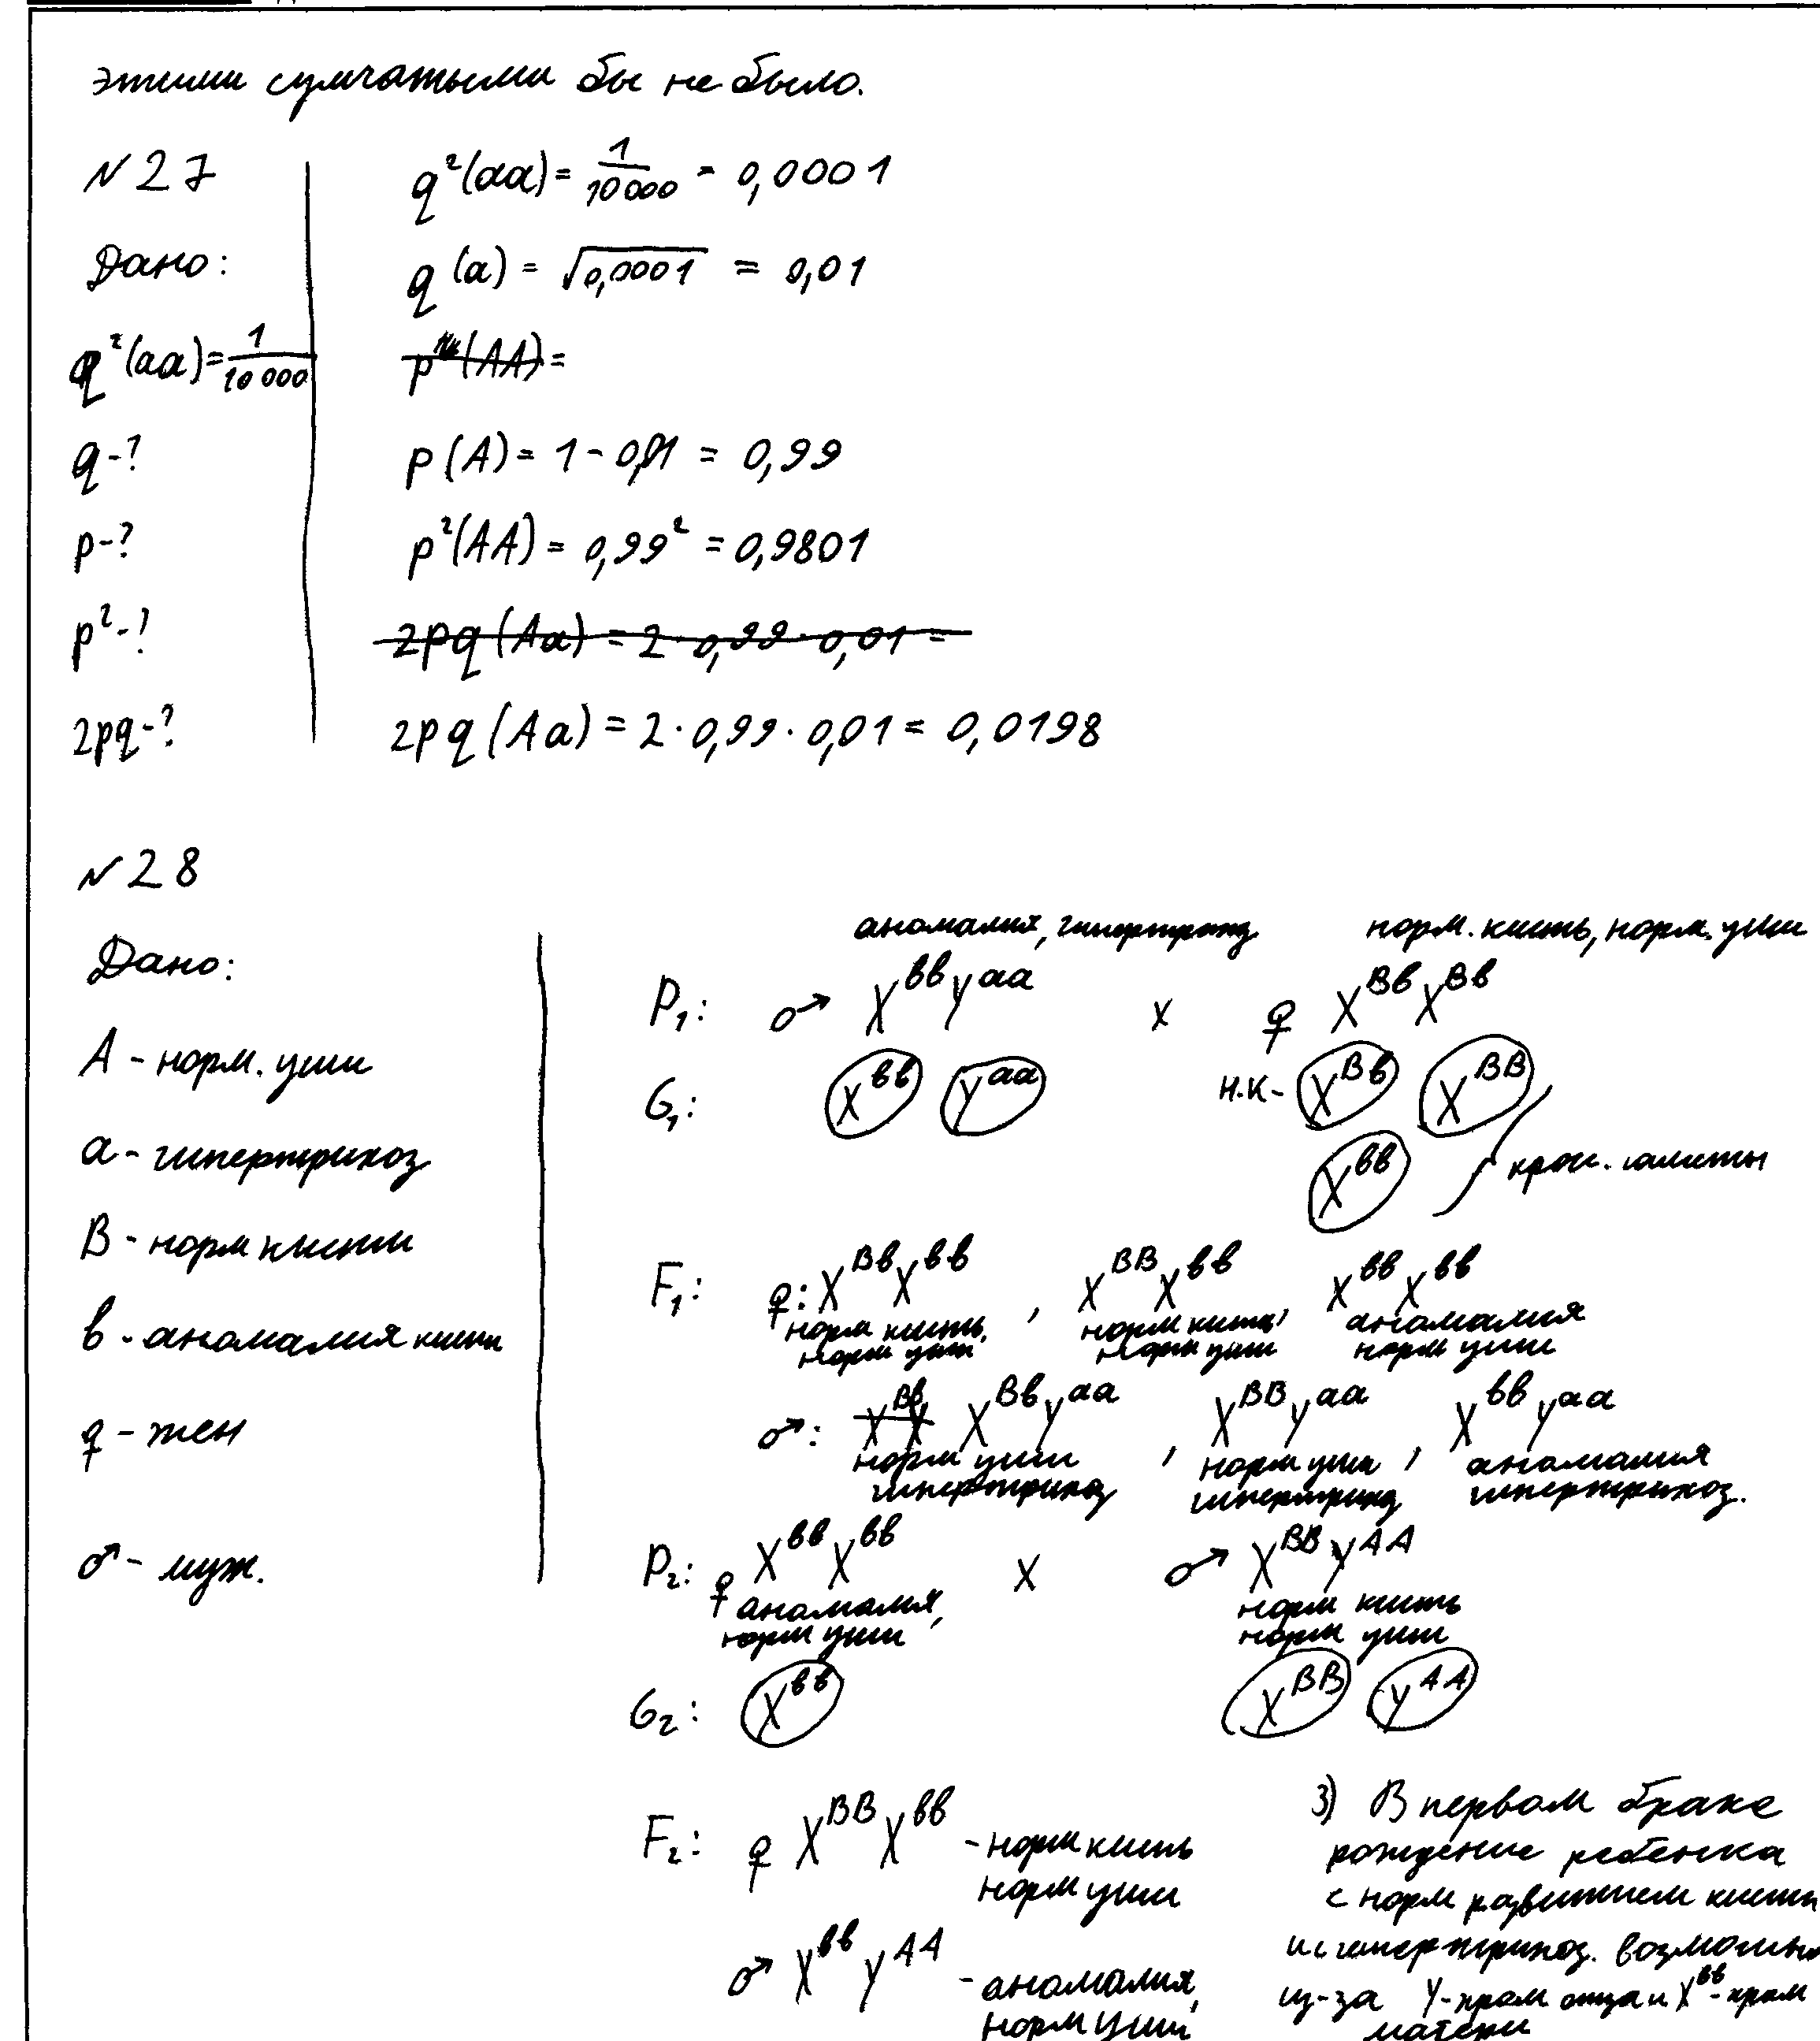 этими сумчатыми бы не было.
№27
Дано:
q²(aa)=1/10000
q-?
p-?
p²-?
2pq-?
q²(aa)=1/10000 = 0,0001
q(a) = √0,0001 = 0,01
p(AA)=
p(A)= 1-0,01 = 0,99
p²(AA)= 0,99² = 0,9801
2pq(Aa) = 2·0,99·0,01 =
2pq(Aa) = 2·0,99·0,01 = 0,0198
№28
Дано:
A - норм. уши
a - гипертрихоз
B - норм кисти
b - аномалия кисти
♀ - жен
♂ - муж.
аномалия, гипертрихоз норм. кисть, норм. уши
P₁: ♂ X^bb Y^aa x ♀ X^Bb X^Bb
G₁: X^bb Y^aa н.к- X^Bb X^BB
X^bb крос. гаметы
F₁: ♀: X^Bb X^bb , X^BB X^bb X^bb X^bb
норм кисть, норм кисть, аномалия
норм уши норм уши норм уши
♂: X^Bb X X^Bb Y^aa , X^BB Y^aa , X^bb Y^aa
норм уши норм уши аномалия
гипертрихоз гипертрихоз гипертрихоз.
P₂: ♀ X^bb X^bb x ♂ X^BB Y^AA
аномалия, норм кисть
норм уши норм уши
G₂: X^bb X^BB Y^AA
F₂: ♀ X^BB X^bb - норм кисть
норм уши
♂ X^bb Y^AA - аномалия,
норм уши
3) В первом браке
рождение ребенка
с норм развитием кисти
и с гипертрихоз. возможно
из-за Y-хром отца и X^bb-хром
матери